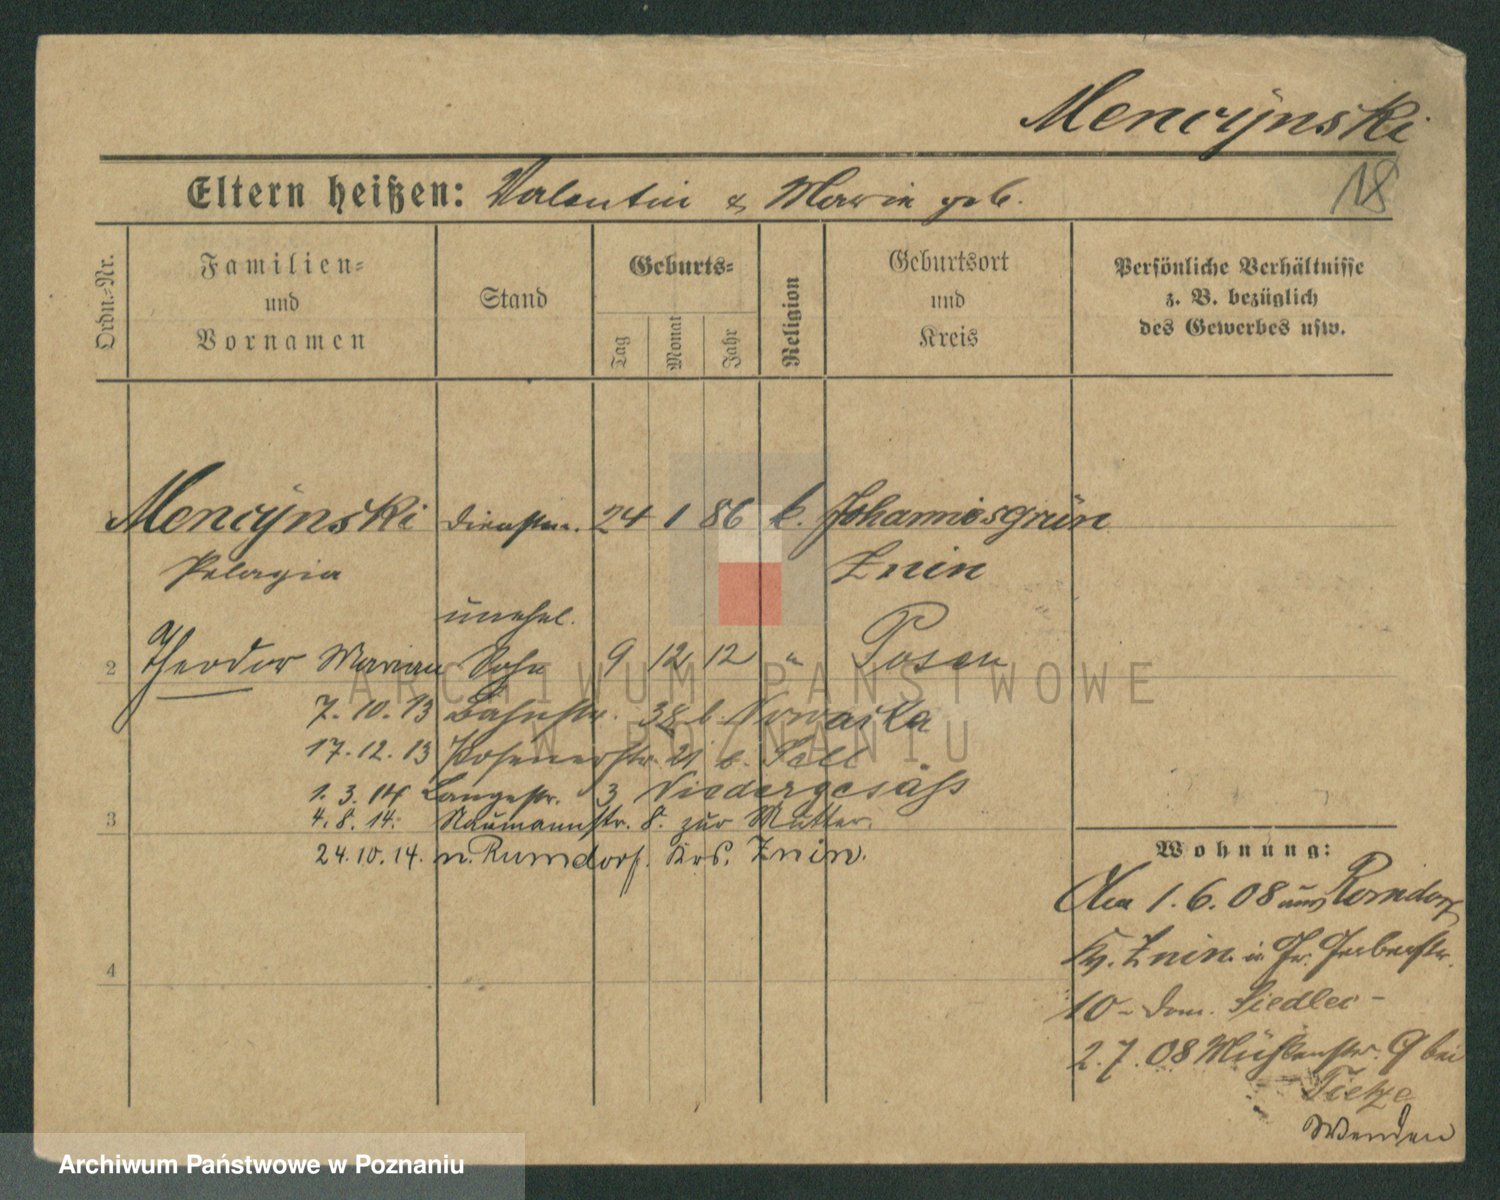 Mencÿnski
18
Eltern heißen: Valentin & Marie geb.
Ordn.-Nr.
Familien- und Vornamen
Stand
Geburts-
Tag
Monat
Jahr
Religion
Geburtsort und Kreis
Persönliche Verhältnisse
z. B. bezüglich
des Gewerbes usw.
Mencÿnski Dienstm. 24 1 86 k. Johannisgrün
Pelagia Znin
unehel.
2 Theodor Marian Sohn 9 12 12 " Posen
7.10.13 Bahnstr. 38 b. Nowaska
17.12.13 Posenerstr. 21 b. Sell
1.3.14 Langestr. 3 Niedergesäss
3 4.8.14. Naumannstr. 8. zur Mutter.
24.10.14. n. Rumdorf. Krs. Znin.
4
Wohnung:
Am 1.6.08 aus Romdorf
Kr. Znin. in Gr. Gerberstr.
10 - Dom. Siedlec -
2.7.08 Mühlenstr. 9 bei
Tietze
Wenden
ARCHIWUM PAŃSTWOWE
W POZNANIU
Archiwum Państwowe w Poznaniu